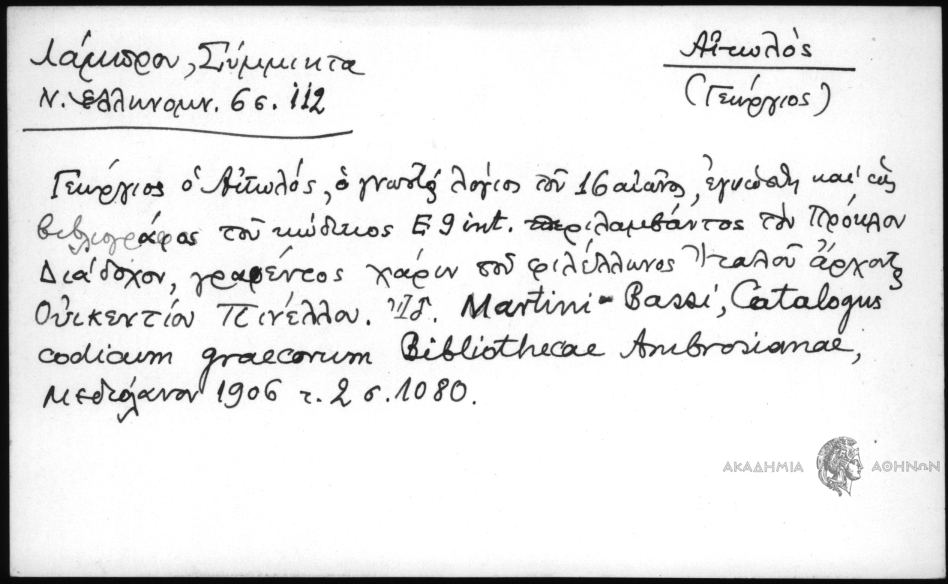 Αἰτωλός
(Γεώργιος)
Λάμπρου, Σύμμικτα
Ν. Ἑλληνομν. 6 σ. 112
Γεώργιος ὁ Αἰτωλός, ὁ γνωστὸς λόγιος τοῦ 16 αἰῶνος, ἐγνώσθη καὶ ὡς
βιβλιογράφος τοῦ κώδικος E 9 int. περιλαμβάντος τὸν Πρόκλον
Διάδοχον, γραφέντος χάριν τοῦ φιλέλληνος Ἰταλοῦ ἄρχοντος
Οὐικεντίου Πινέλλου. Ἰδ. Martini - Bassi, Catalogus
codicum graecorum Bibliothecae Ambrosianae,
Μεδιόλανον 1906 τ. 2 σ. 1080.
ΑΚΑΔΗΜΙΑ ΑΘΗΝΩΝ